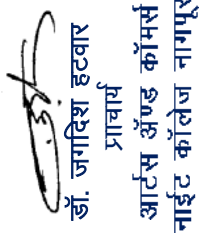 डॉ. जगदिश हटवार
प्राचार्य
आर्टस अ‍ॅण्ड कॉमर्स
नाईट कॉलेज नागपूर